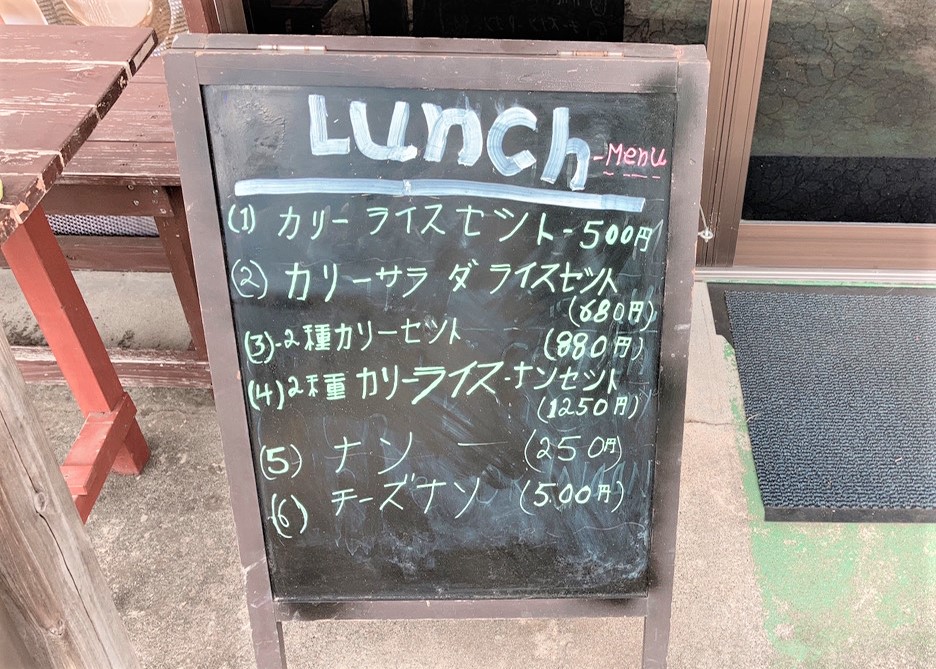 Lunch
-Menu
(1) カリーライスセット-500円
(2) カリーサラダライスセット
(680円)
(3)-2種カリーセット
(880円)
(4)2種カリーライス-ナンセット
(1250円)
(5) ナン ー (250円)
(6) チーズナン (500円)